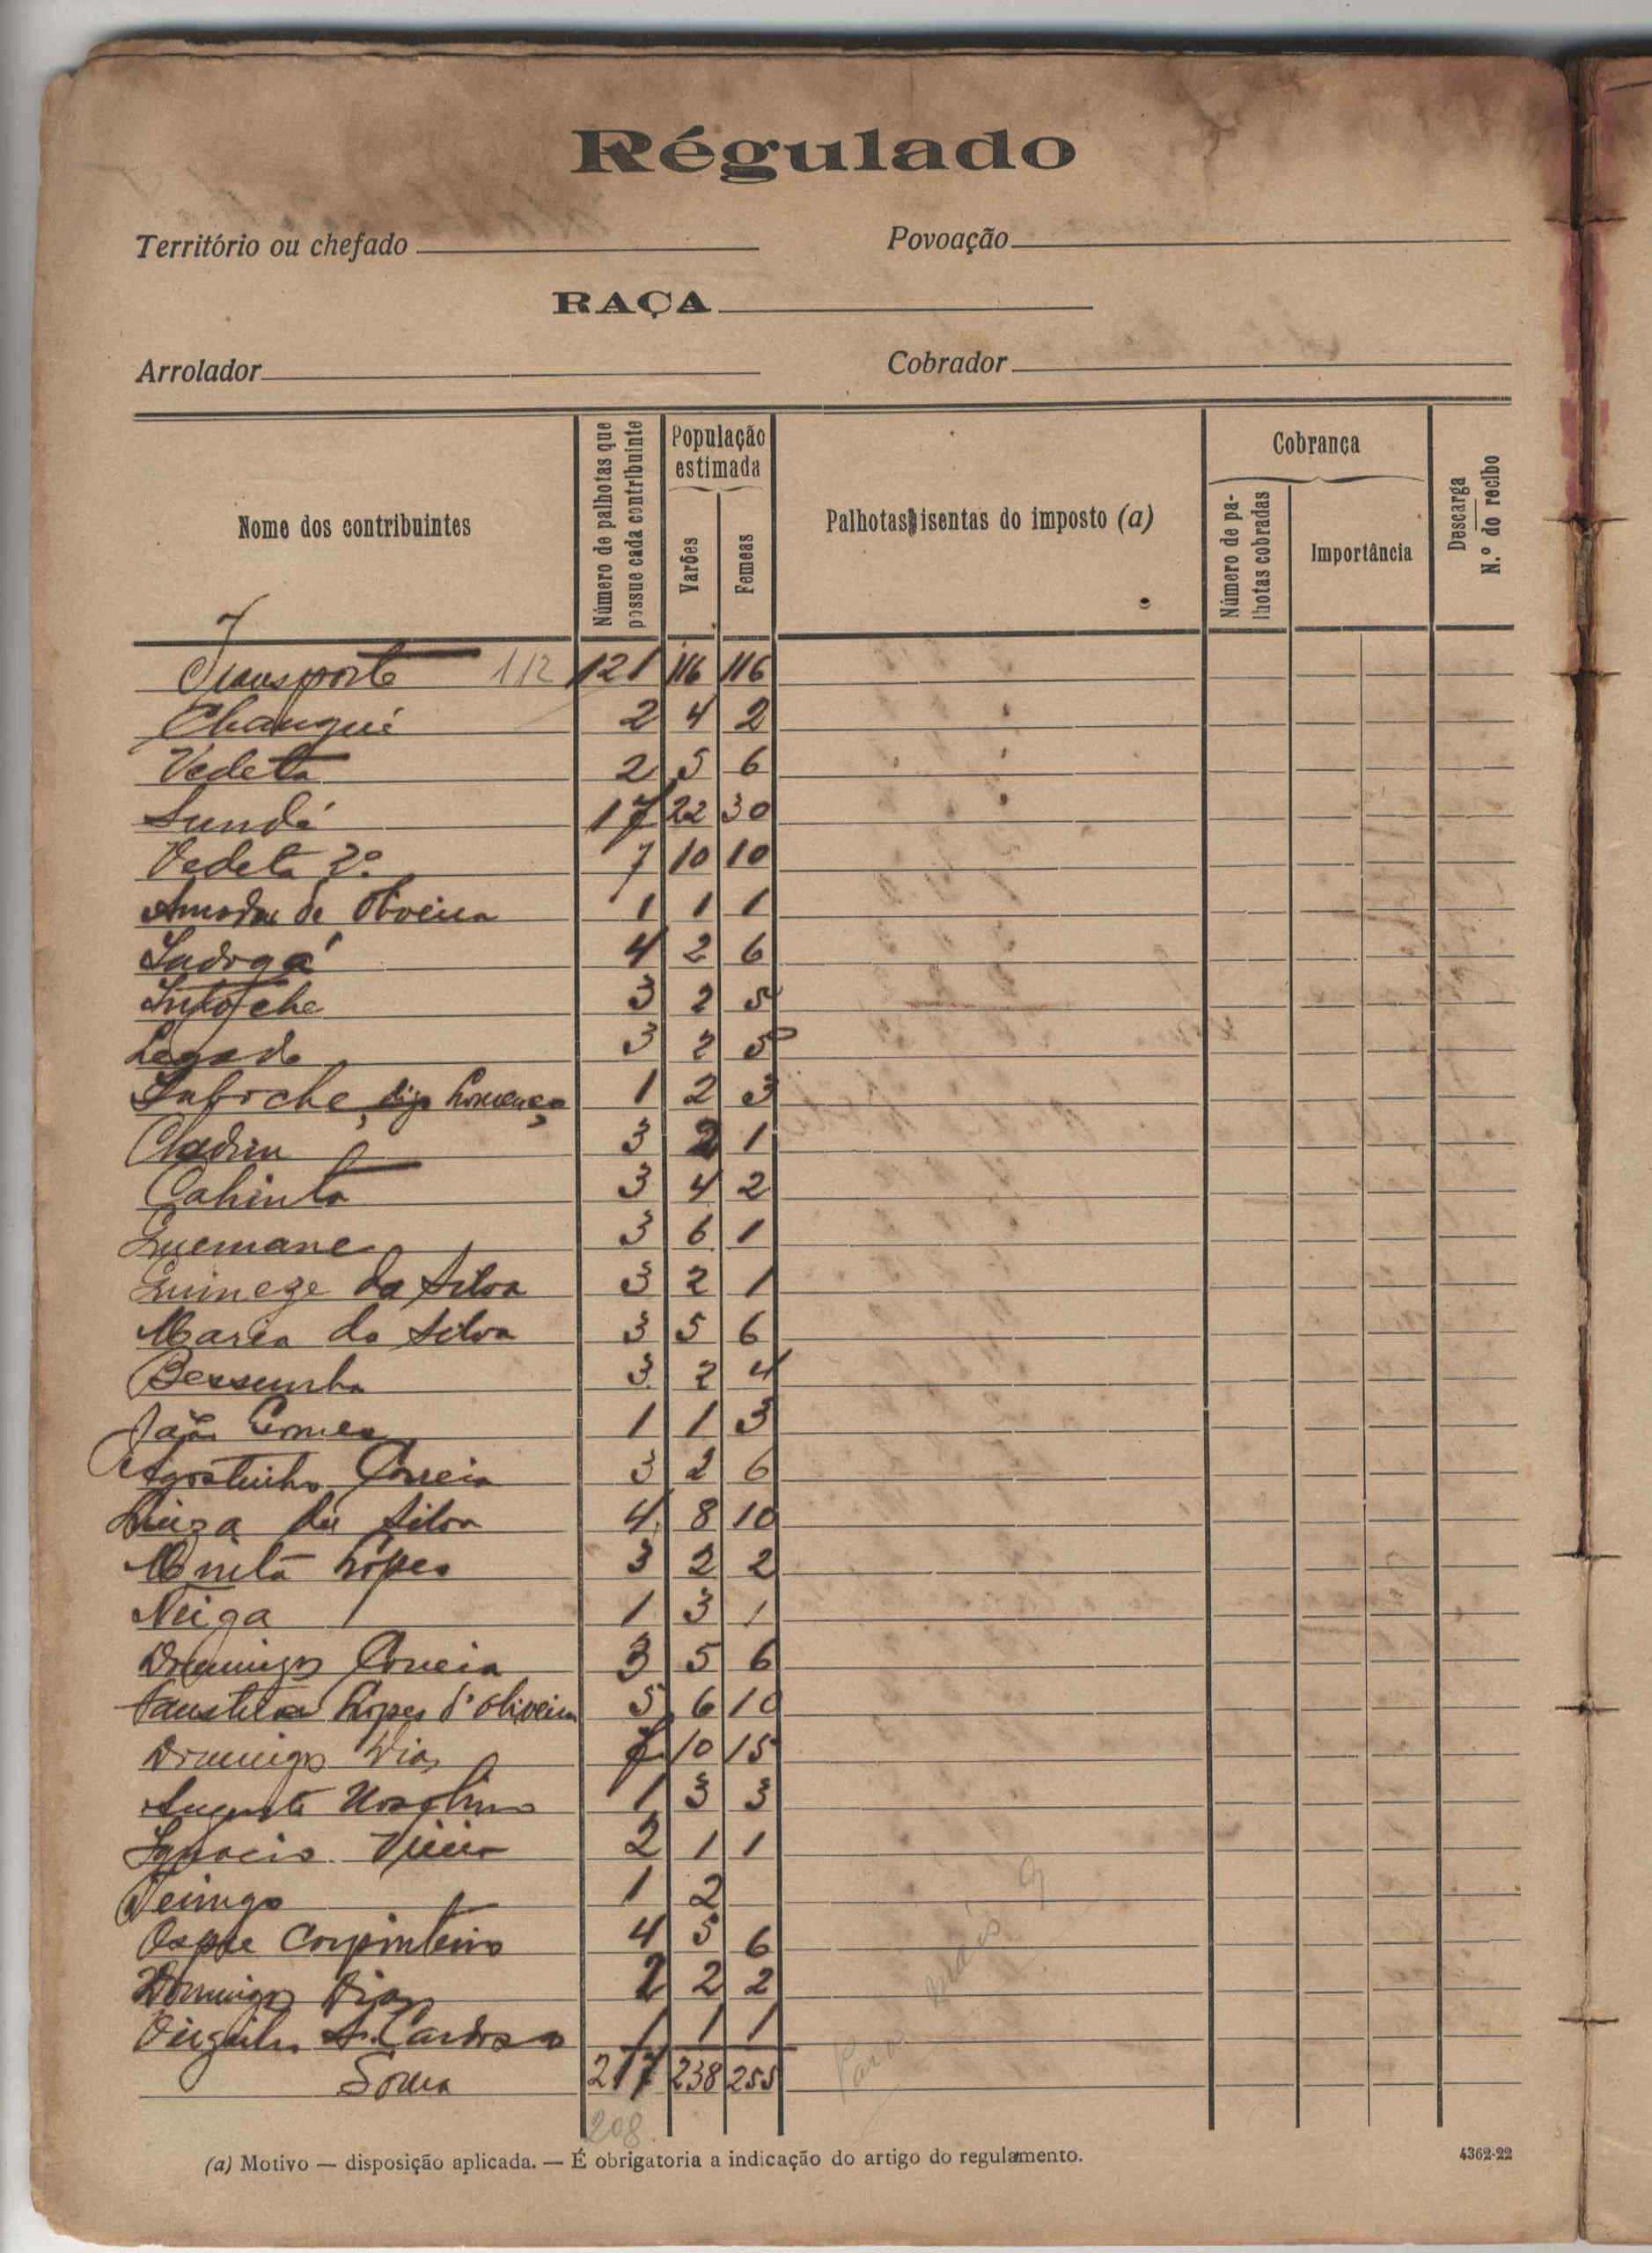 Régulado
Território ou chefado Povoação
RAÇA
Arrolador Cobrador
Nome dos contribuintes
Número de palhotas que possue cada contribuinte
População estimada
Varões
Femeas
Palhotas isentas do imposto (a)
Cobrança
Número de palhotas cobradas
Importância
Descarga
N.º do recibo
Transporte 112 121 116 116
Changué 2 4 2
Vedeta 2 5 6
Sundá 17 22 30
Vedeta 2º 7 10 10
Amador de Oliveira 1 1 1
4 2 6
3 2 5
3 2 5
digo Lourenço 1 2 3
3 2 1
Cahinta 3 4 2
3 6 1
da Silva 3 2 1
Maria da Silva 3 5 6
Bessunha 3 2 4
João Gomes 1 1 3
Agostinho Correia 3 2 6
Luiza da Silva 4 8 10
Lopes 3 2 2
Neiga 1 3 1
Domingos Correia 3 5 6
Lopes d'Oliveira 5 6 10
Domingos Dias 7 10 15
Augusto 1 3 3
Ignacio Vieira 2 1 1
1 2
Carpinteiro 4 5 6
Domingos Dias 2 2 2
A. Cardoso 1 1 1
Soma 217 238 255
208
Para mais 9
(a) Motivo — disposição aplicada. — É obrigatoria a indicação do artigo do regulamento.
4362-22